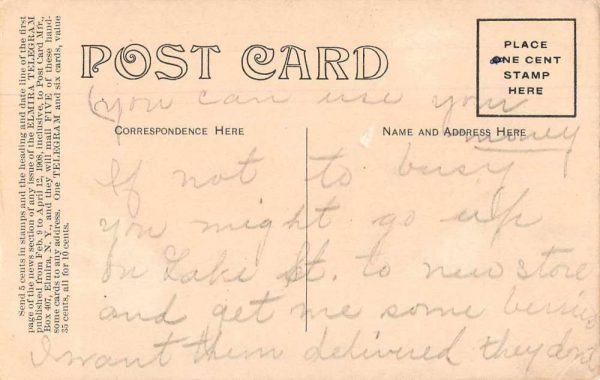 Send 5 cents in stamps and the heading and date line of the first
page of the news section of any issue of the ELMIRA TELEGRAM
published from Feb. 9 to April 12, 1908, inclusive, to Post Card Mfr.,
Box 407, Elmira, N. Y., and they will mail FIVE of these hand-
some cards to any address. One TELEGRAM and six cards, value
35 cents, all for 10 cents.
POST CARD
PLACE
ONE CENT
STAMP
HERE
(you can use your
money
CORRESPONDENCE HERE
NAME AND ADDRESS HERE
If not to busy
you might go up
on Lake St. to new store
and get me some berries
I want them delivered they don't